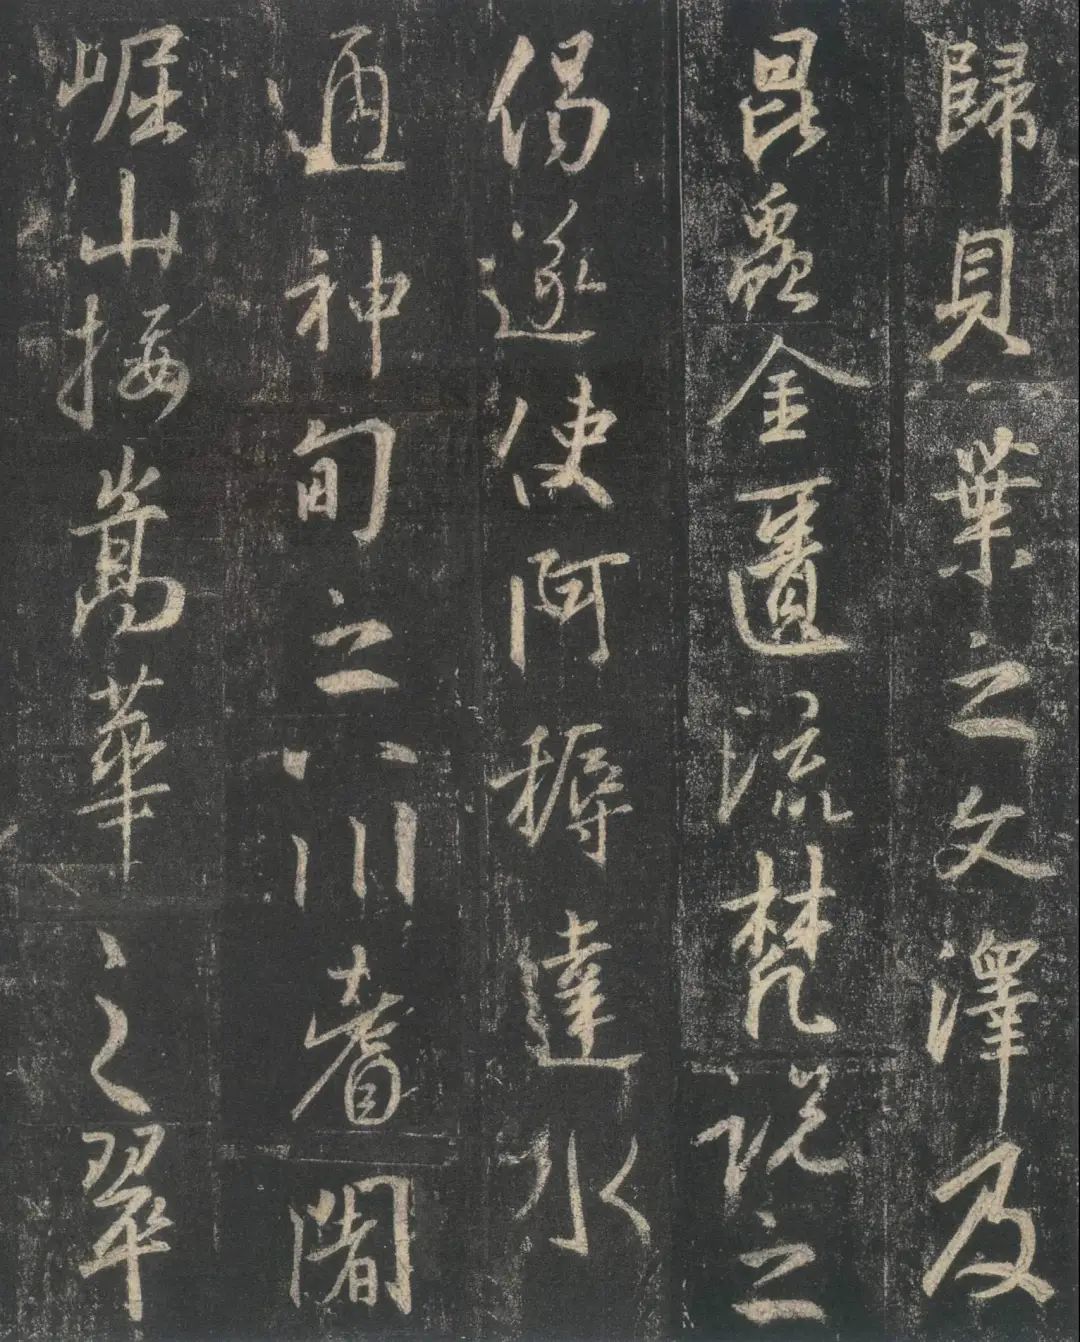 歸貝葉之文澤及
昆蟲金匱流梵說之
偈遂使阿耨達水
通神甸之八川耆闍
崛山接嵩華之翠